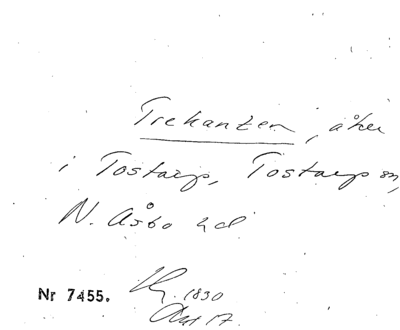 Trekanten, åker
i Tostarp, Tostarp sn,
N. Åsbo hd
Nr 7455. 1830
Akt 17